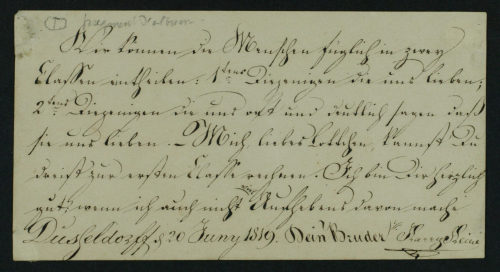 Wir können die Menschen füglich in zwey
Classen eintheilen. 1tens Diejenigen die uns lieben;
2tens Diejenigen die uns oft und deutlich sagen daß
sie uns lieben. – Mich, liebes Lottchen, kannst Du
dreist zur ersten Classe rechnen. Ich bin Dir herzlich
gut, wenn ich auch nicht viel Aufhebens davon mache
Dusseldorff, d 30 Juny 1819. Dein Bruder Franz